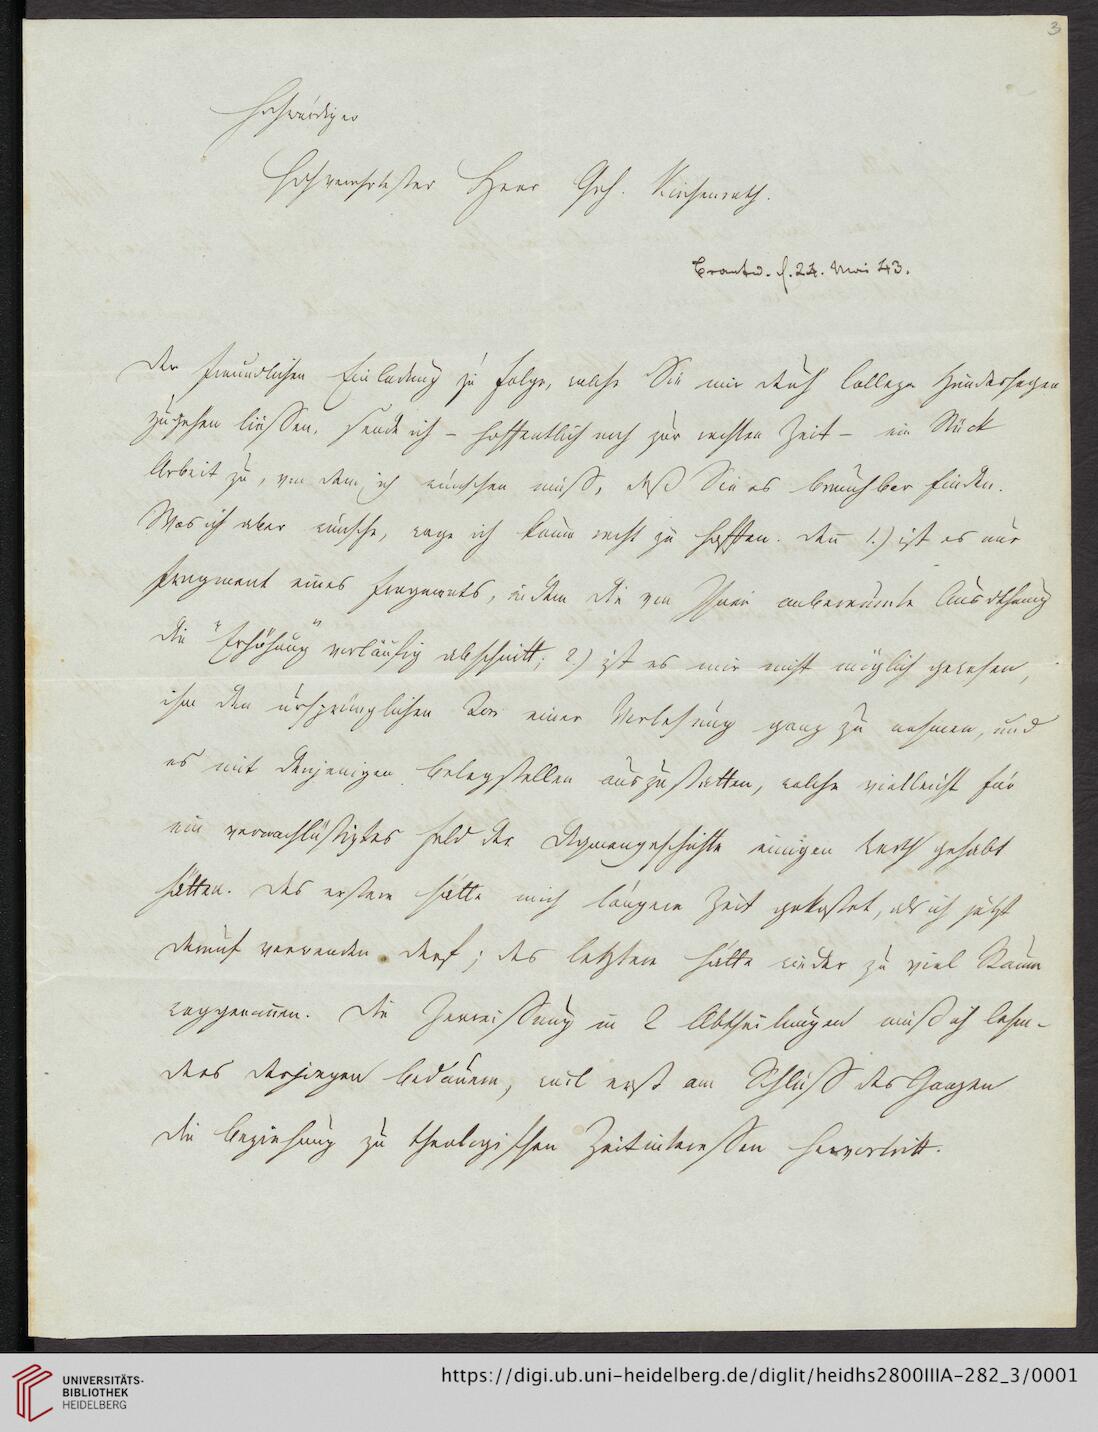 3
Hochwürdiger
Hochverehrtester Herr Geh. Kirchenrath.
d. 24. Mai 43.
Der freundlichen Einladung zu Folge, welche Sie mir durch Collega Hundeshagen
zugehen liessen, sende ich – hoffentlich noch zur rechten Zeit – ein Stück
Arbeit zu, von dem ich wünschen muß, daß Sie es brauchbar finden.
Was ich aber wünsche, wage ich kaum recht zu hoffen. Den̄ 1.) ist es nur
Fragment eines Fragments, indem die von Ihnen anberaumte Ausdehnung
die "Erhöhung" vorläufig abschnitt; 2.) ist es mir nicht möglich gewesen,
ihm den ursprünglichen Ton einer Vorlesung ganz zu nehmen, und
es mit denjenigen Belegstellen auszustatten, welche vielleicht für
ein vernachläßigtes Feld der Dogmengeschichte einigen Werth gehabt
hätten. Das erstere hätte mich längere Zeit gekostet, als ich jetzt
darauf verwenden darf; das letztere hätte wieder zu viel Raum
weggenom̄en. Die Zerreissung in 2 Abtheilungen muß ich
deswegen bedauern, weil erst am Schluß des Ganzen
die Beziehung zu theologischen Zeitinteressen hervortritt.
UNIVERSITÄTS-
BIBLIOTHEK
HEIDELBERG
https://digi.ub.uni-heidelberg.de/diglit/heidhs2800IIIA-282_3/0001